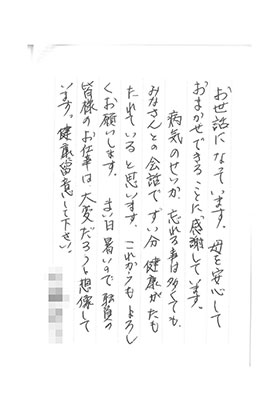 お世話になています。母を安心して
おまかせできることに感謝しています。
病気のせいか、忘れる事は多くても、
みなさんとの会話で、ずい分健康がたも
たれていると思います。これからもよろし
くお願いします。まい日暑いので職員の
皆様のお仕事は大変だろうと想像して
います。健康留意して下さい。